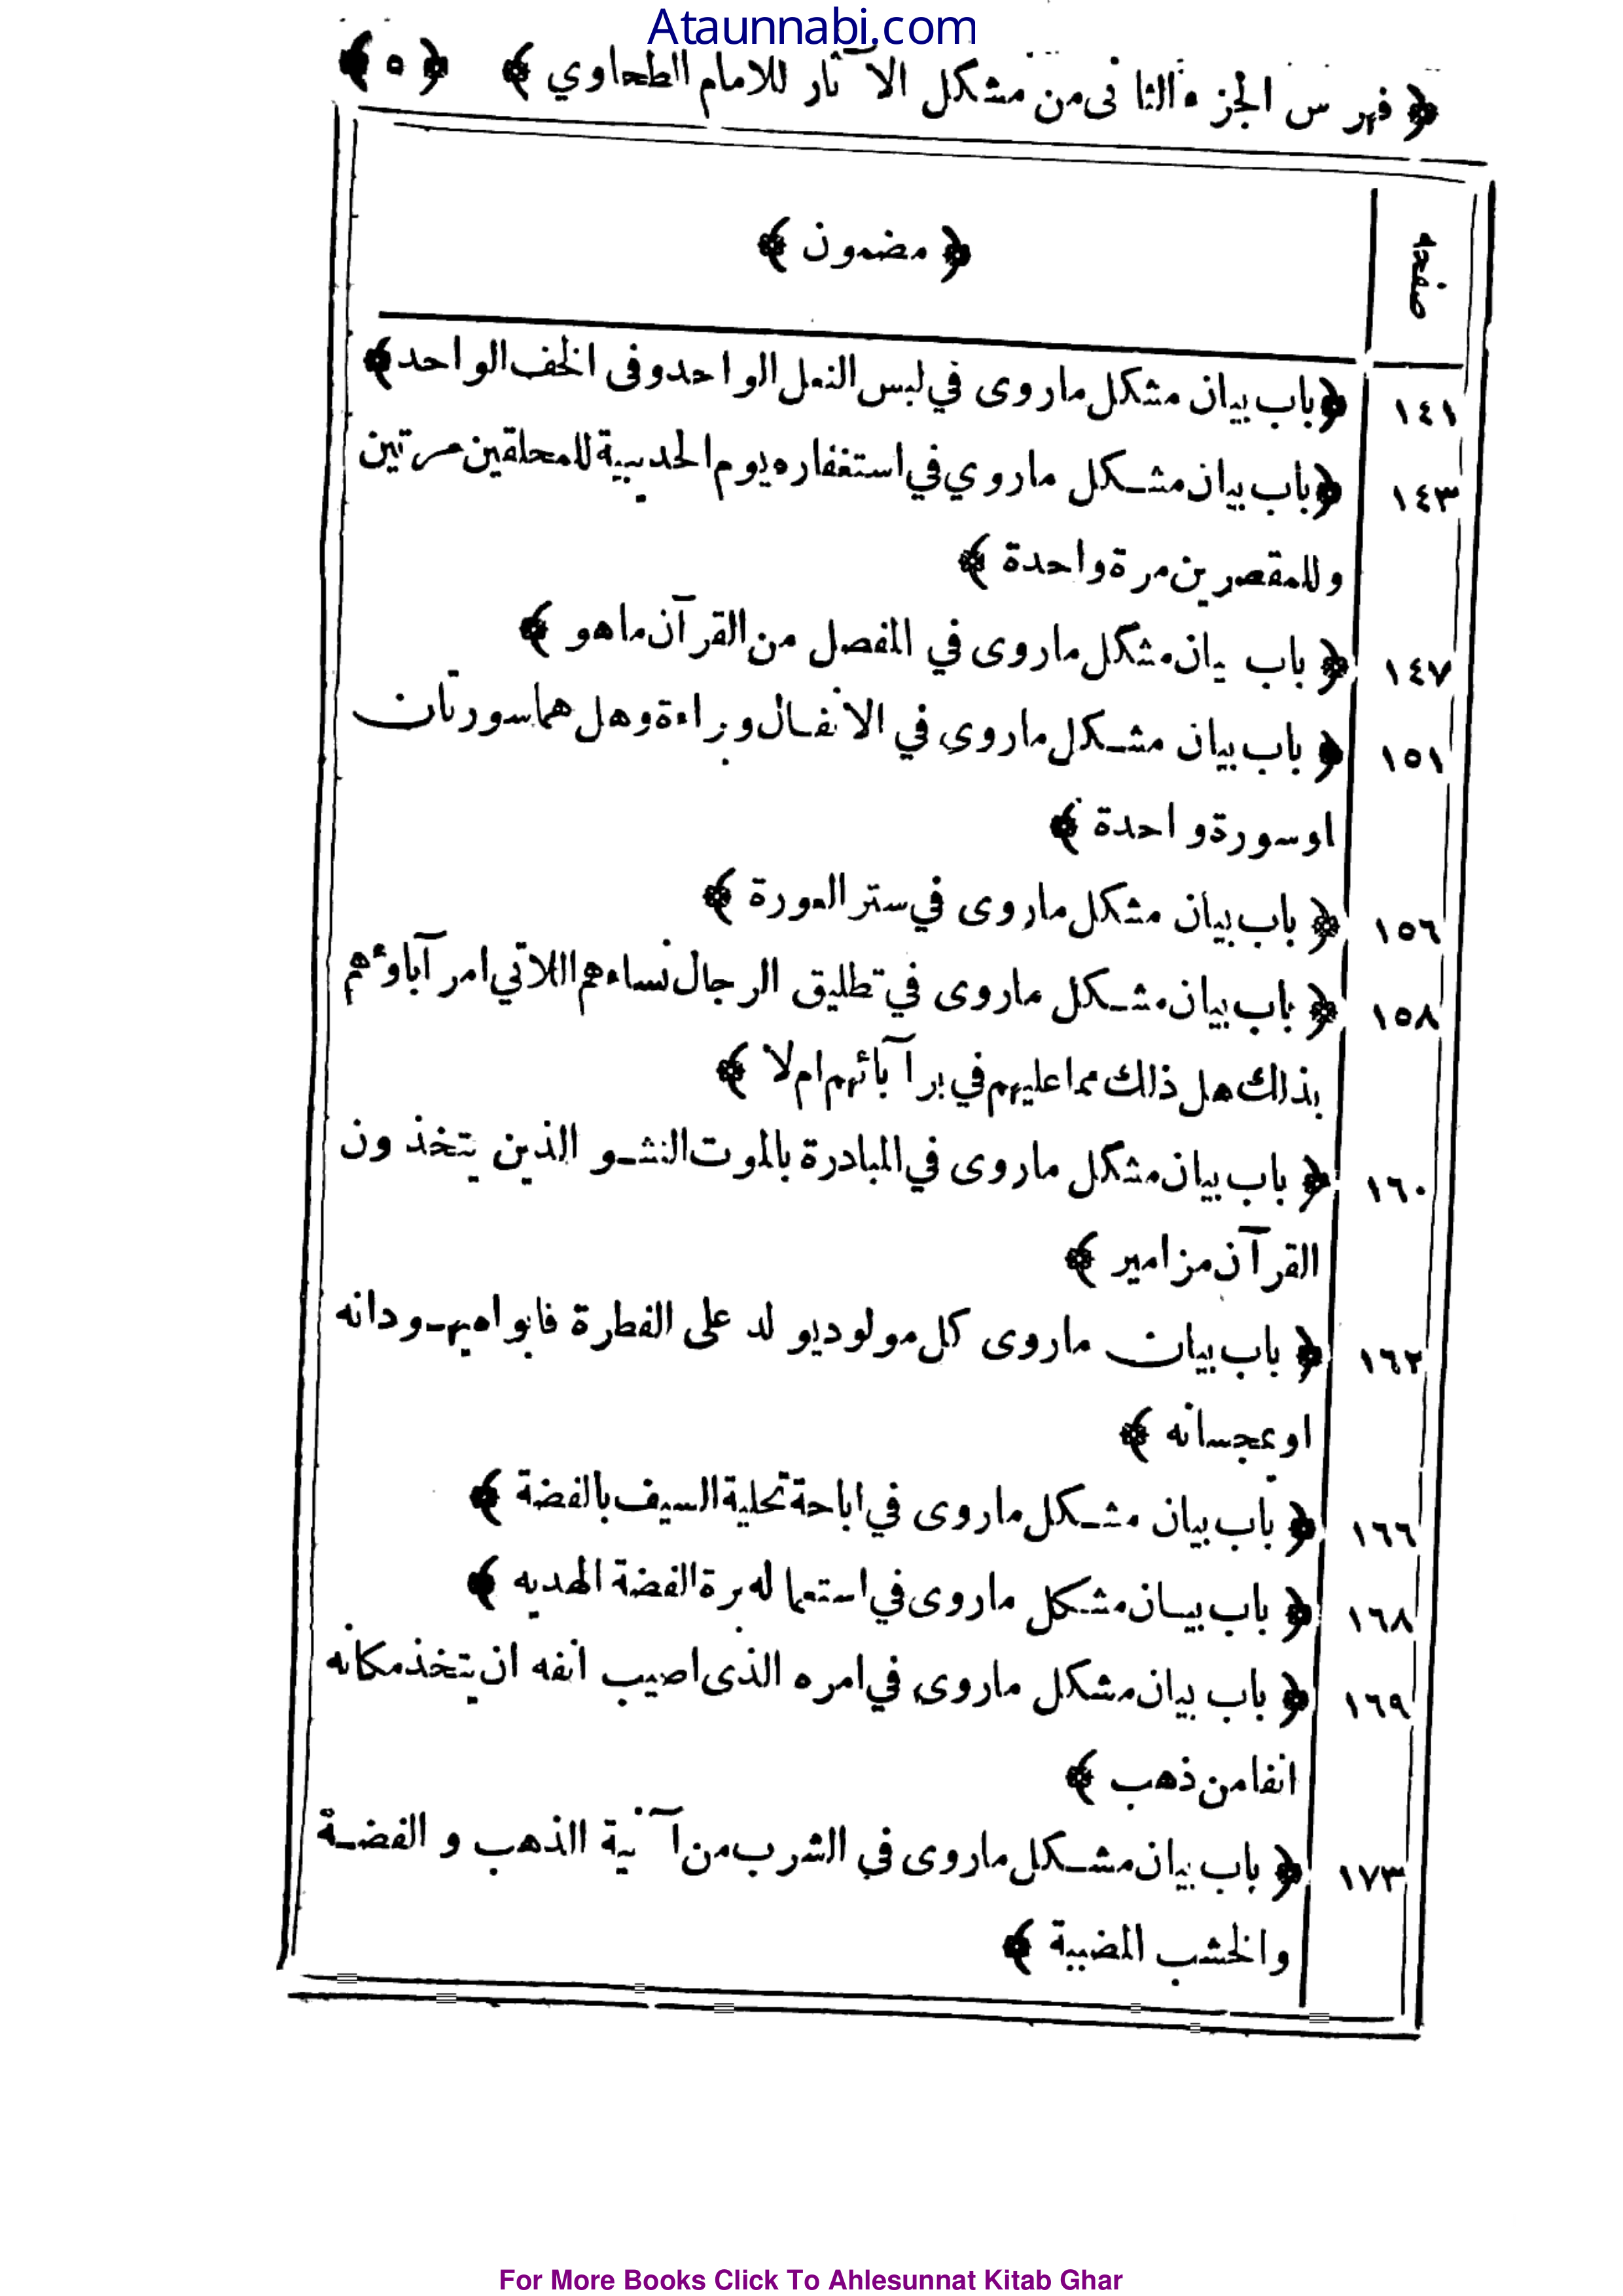 Ataunnabi.com
﴿ فهرس الجزء الثانى من مشكل الآثار للامام الطحاوي ﴾ ﴿ ٥ ﴾
صفحه ﴿ مضمون ﴾
١٤١ ﴿ باب بيان مشكل ماروى في لبس النعل الواحد وفى الخف الواحد ﴾
١٤٣ ﴿ باب بيان مشكل ماروي في استغفاره يوم الحديبية للمحلقين مرتين
وللمقصرين مرة واحدة ﴾
١٤٧ ﴿ باب بيان مشكل ماروى في المفصل من القرآن ماهو ﴾
١٥١ ﴿ باب بيان مشكل ماروى في الانفال وبراءة وهل هما سورتان
او سورة واحدة ﴾
١٥٦ ﴿ باب بيان مشكل ماروى في ستر العورة ﴾
١٥٨ ﴿ باب بيان مشكل ماروى في تطليق الرجال نساءهم اللاتي امر آباؤهم
بذلك هل ذلك مما عليهم في بر آبائهم ام لا ﴾
١٦٠ ﴿ باب بيان مشكل ماروى في المبادرة بالموت النشو الذين يتخذون
القرآن مزامير ﴾
١٦٢ ﴿ باب بيان ماروى كل مولود يولد على الفطرة فابواه يهودانه
او يمجسانه ﴾
١٦٦ ﴿ باب بيان مشكل ماروى في اباحة تحلية السيف بالفضة ﴾
١٦٨ ﴿ باب بيان مشكل ماروى في استعماله برة الفضة لهديه ﴾
١٦٩ ﴿ باب بيان مشكل ماروى في امره الذى اصيب انفه ان يتخذ مكانه
انفا من ذهب ﴾
١٧٣ ﴿ باب بيان مشكل ماروى في الشرب من آنية الذهب و الفضة
والخشب المضببة ﴾
For More Books Click To Ahlesunnat Kitab Ghar